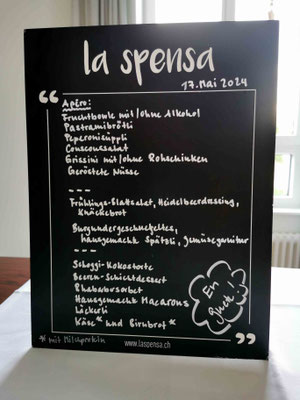 la spensa
17. Mai 2024
Apéro:
Fruchtbowle mit/ohne Alkohol
Pastramibrötli
Peperonisüppli
Couscoussalat
Grissini mit/ohne Rohschinken
Geröstete Nüsse
---
Frühlings-Blattsalat, Heidelbeerdressing,
Knäckebrot
Burgundergeschnetzeltes,
hausgemachte Spätzli, Gemüsegarnitur
---
Schoggi-Kokostorte
Beeren-Schichtdessert
Rhabarbersorbet
Hausgemachte Macarons
Läckerli
Käse* und Birnbrot*
En
guete!
* mit Milchprotein
www.laspensa.ch